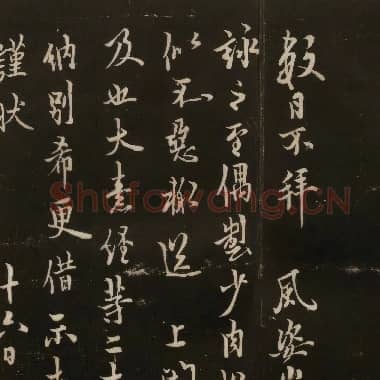 數日不拜 風姿
詠之至偶製少肉
似不惡輒送上
及也大素經等二
納別希更借示
謹狀 十六日
Shufawang.CN